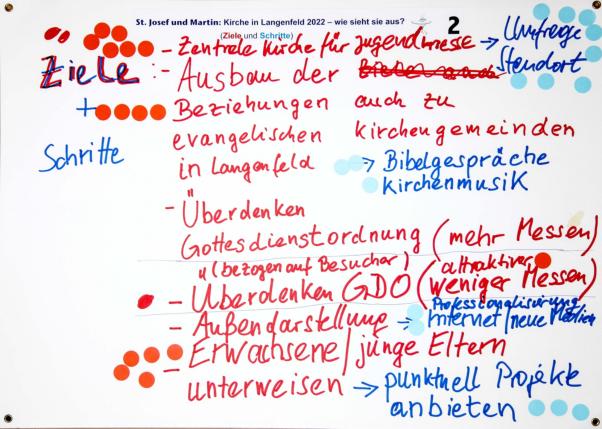 St. Josef und Martin: Kirche in Langenfeld 2022 – wie sieht sie aus?
(Ziele und Schritte)
2
Ziele:
+
Schritte
- Zentrale Kirche für Jugendmesse → Umfrage
Standort
- Ausbau der
Beziehungen auch zu
evangelischen Kirchengemeinden
in Langenfeld → Bibelgespräche
Kirchenmusik
- Überdenken
Gottesdienstordnung (mehr Messen)
(bezogen auf Besucher) (attraktiver
- Überdenken GDO (weniger Messen)
Professionalisierung
- Außendarstellung → Internet/neue Medien
- Erwachsene/junge Eltern
unterweisen → punktuell Projekte
anbieten